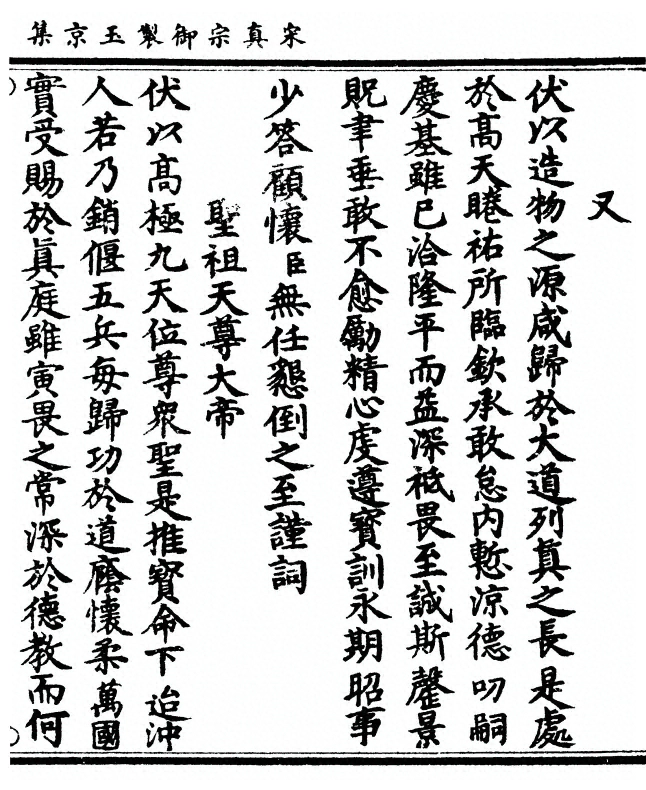 宋真宗御製玉京集
又
伏以造物之源咸歸於大道列真之長是處
於高天睠祐所臨欽承敢怠內慙涼德叨嗣
慶基雖已洽隆平而益深祗畏至誠斯罄景
貺聿垂敢不愈勵精心虔遵寶訓永期昭事
少答顧懷臣無任懇倒之至謹詞
聖祖天尊大帝
伏以高極九天位尊衆聖是推寶命下迨沖
人若乃銷偃五兵每歸功於道廕懷柔萬國
實受賜於真庭雖寅畏之常深於德教而何